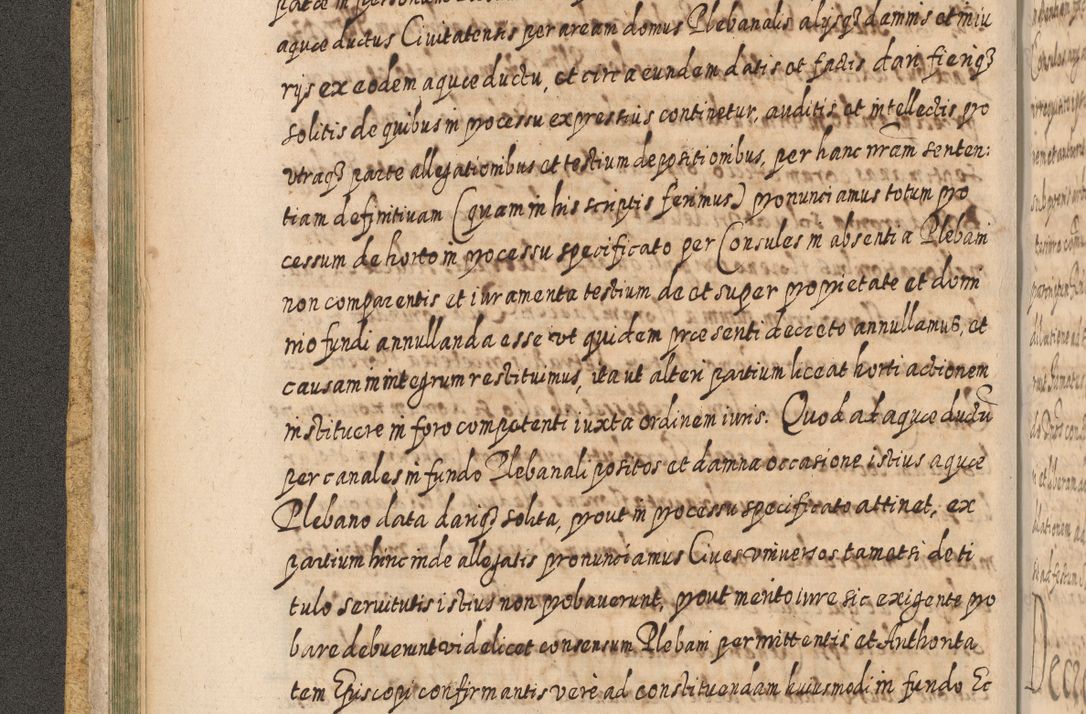 aquæ ductus Civitatensis per aream domus Plebanalis alysq3 damnis et iniu
rijs ex eodem aquæ ductu, et circa eundem datis et factis dari fieriq3
solitis de quibus in processu expressius continetur, auditis et intellectis pro
utraq3 parte allegationibus et testium depositionibus, per hanc nr̃am senten:
tiam definitivam (quam in his scriptis ferimus) pronunciamus totum pro
cessum de horto in processu specificato per Consules in absentia Plebani
non comparentis et iuramenta testium de et super proprietate et domi
nio fundi annullanda esse ut quidem præsenti decreto annullamus, et
causam in integrum restituimus, ita ut alteri partium liceat horti actionem
instituere in foro competenti iuxta ordinem iuris. Quod ad aquæ ductū
per canales in fundo Plebanali positos et damna occasione istius aquæ
Plebano data dariq3 solita, prout in processu specificato attinet, ex
partium hinc inde allegatis pronunciamus Cives universos tametsi de ti
tulo servitutis istius non probaverunt, prout merito iure sic exigente pro
bare debuerunt videlicet consensum Plebani permittentis et Authorita
tem Episcopi confirmantis vere ad constituendam huiusmodi in fundo Ec